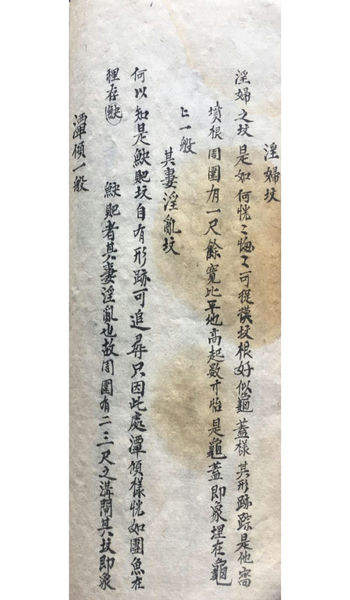 淫婦坟
淫婦之坟是如何恍〻惚〻可從談坟根好似龜蓋樣其形跡踪是他當
墳根周圍有一尺餘寬比平地高起數寸恰是龜蓋即象埋在龜
上一般
其妻淫亂坟
何以知是鮁肥坟自有形跡可追尋只因此處潭傾樣恍如團魚在
裡存鮁 鮁肥者其妻淫亂也故周圍有二三尺之溝開其坟即象
潭傾一般